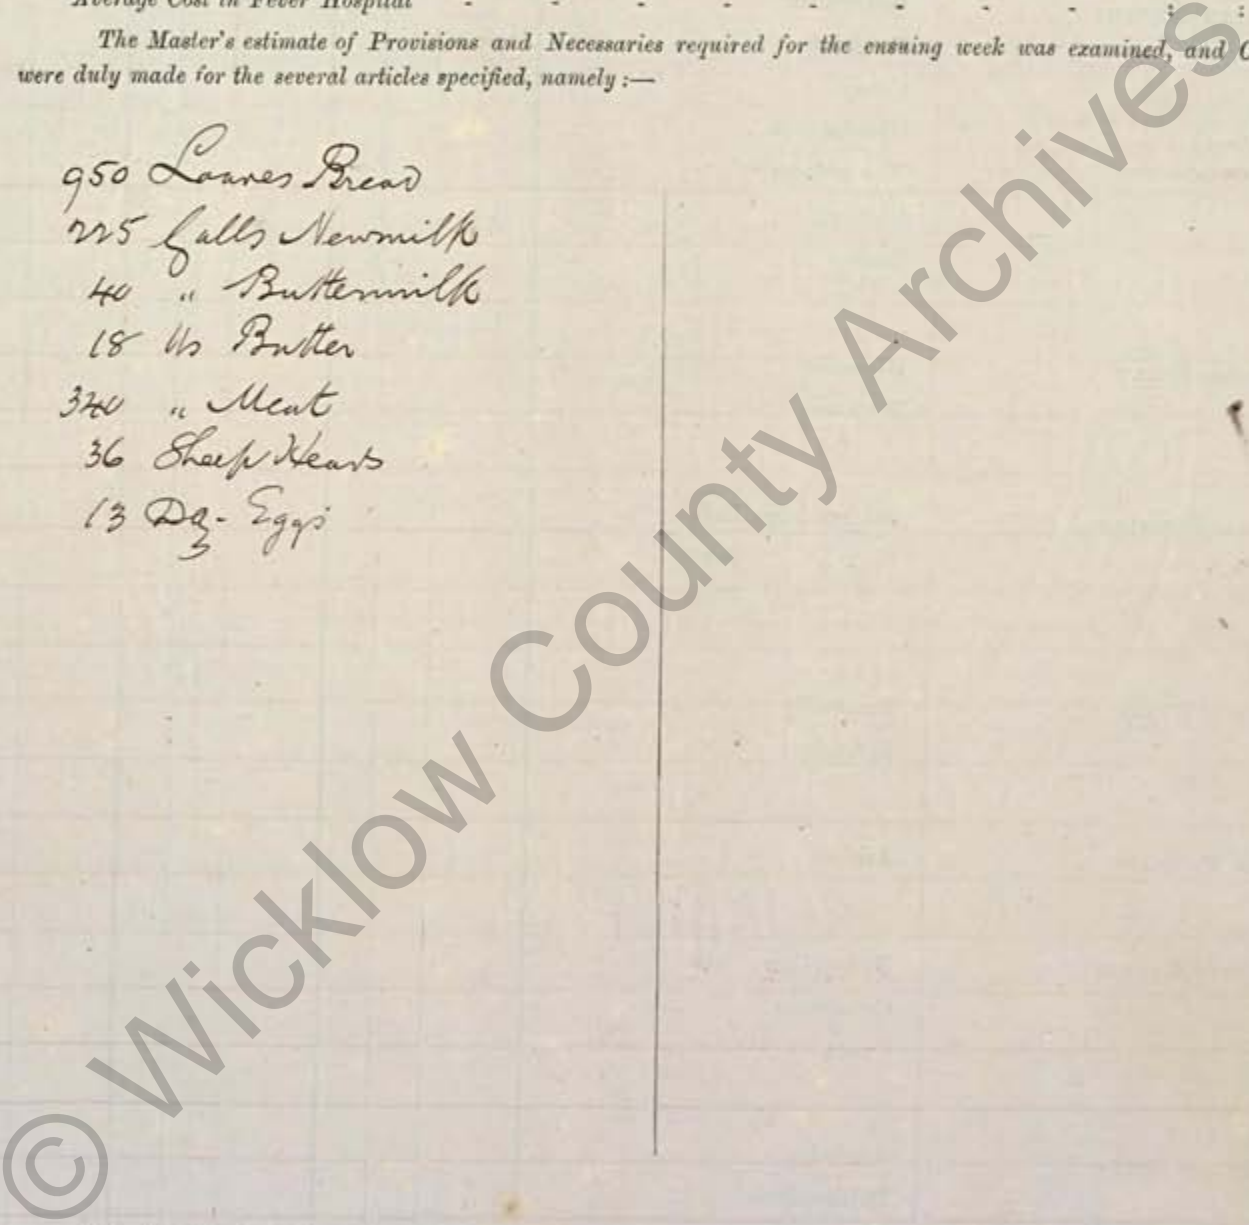 Average Cost in Fever Hospital - - - - - - - - : :
The Master's estimate of Provisions and Necessaries required for the ensuing week was examined, and O
were duly made for the several articles specified, namely :—
950 Loaves Bread
225 Galls Newmilk
40 " Buttermilk
18 lbs Butter
340 " Meat
36 Sheep Hearts
13 Doz- Eggs
© Wicklow County Archives